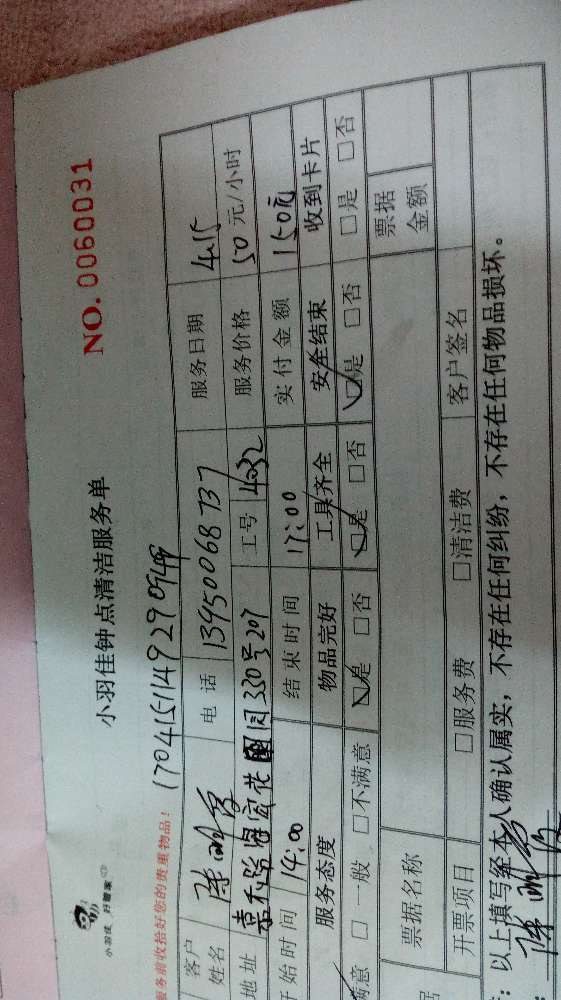 小羽佳 好管家
小羽佳钟点清洁服务单
NO. 0060031
服务前收拾好您的贵重物品!
客户姓名 电话 13950068737 服务日期 4.15
地址 工号 4032 服务价格 50 元/小时
开始时间 14:00 结束时间 17:00 实付金额 150元
服务态度 物品完好 工具齐全 安全结束 收到卡片
满意 □一般 □不满意 □是 □否 □是 □否 □是 □否 □是 □否
票据名称 票据金额
开票项目 □服务费 □清洁费 客户签名
以上填写经本人确认属实,不存在任何纠纷,不存在任何物品损坏。